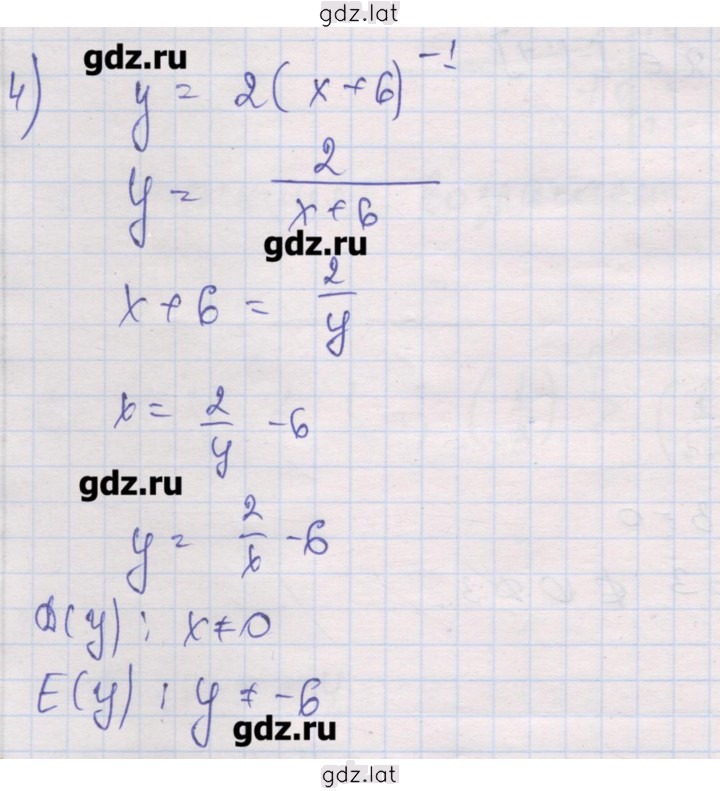 gdz.lat
gdz.ru
4) y = 2(x+6)^-1
y = 2/(x+6)
gdz.ru
x+6 = 2/y
x = 2/y -6
gdz.ru
y = 2/x -6
D(y): x≠0
E(y): y≠-6
gdz.ru
gdz.lat